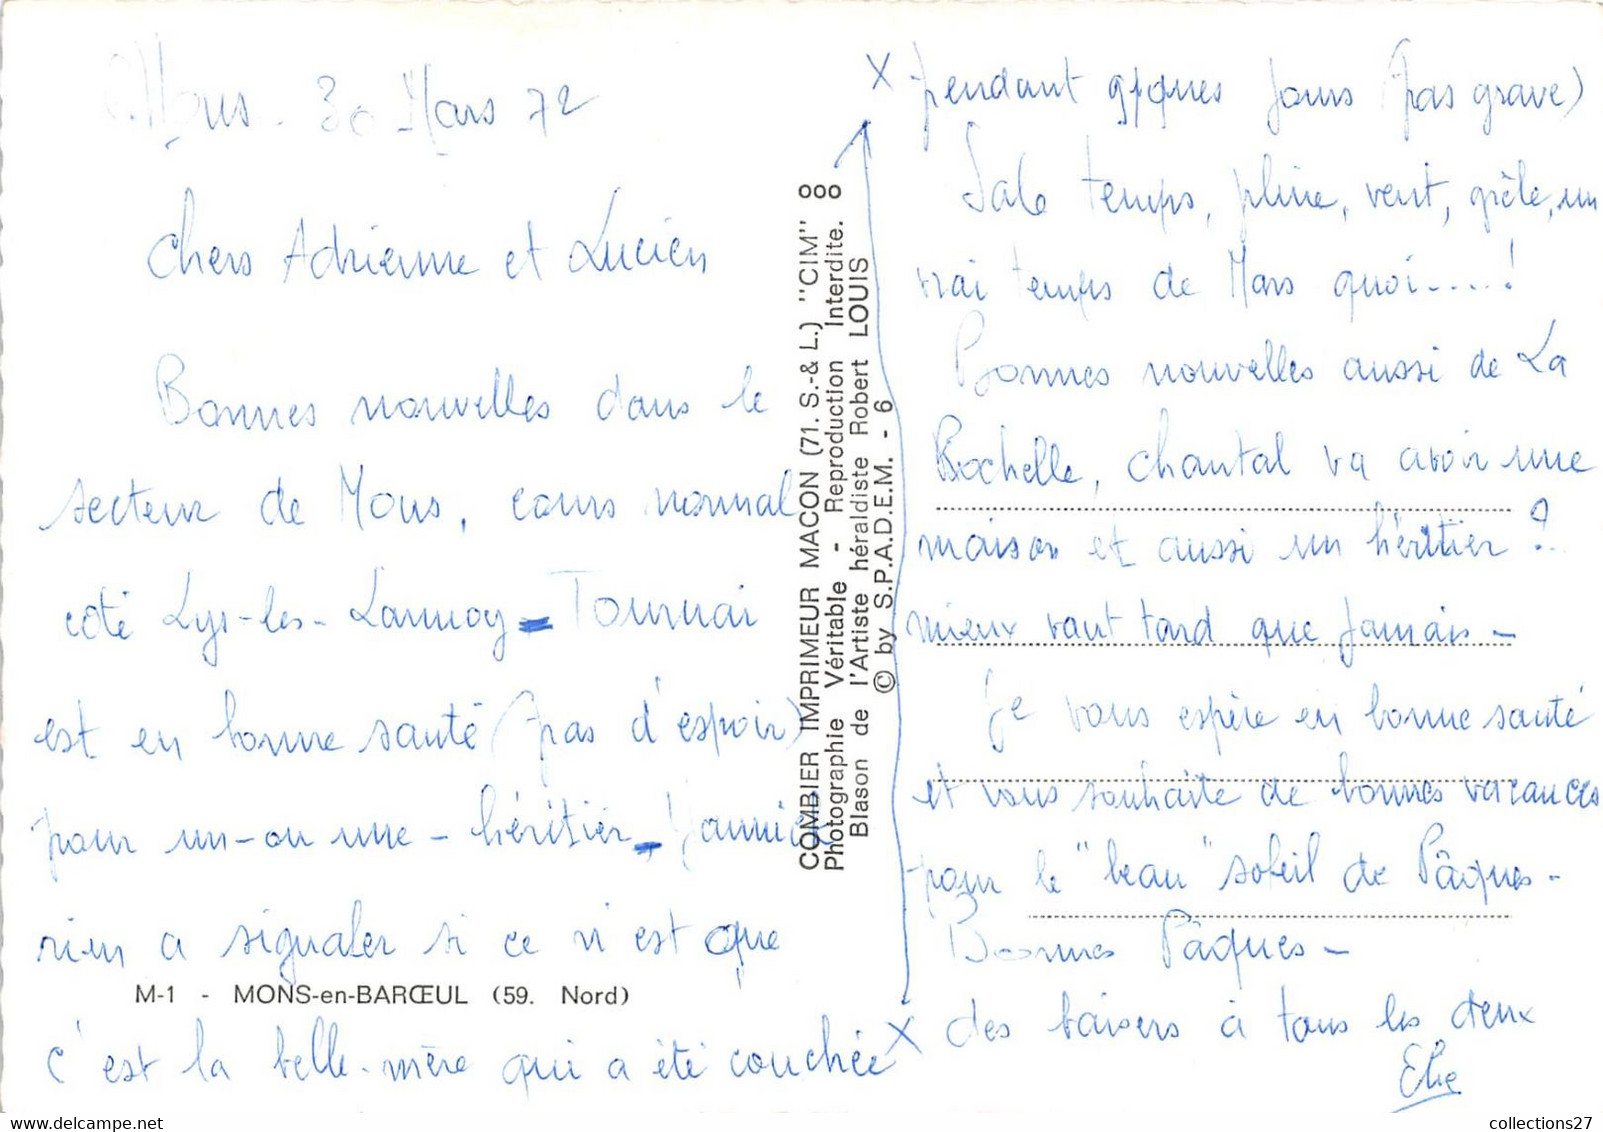 Mons. 30 Mars 72
Chers Adrienne et Lucien
Bonnes nouvelles dans le
secteur de Mons, cours normal
côté Lys-les-Lannoy - Tournai
est en bonne santé (pas d'espoir)
pour un-ou une - héritier - Yannick
rien a signaler si ce n'est que
M-1 - MONS-en-BARŒUL (59. Nord)
c'est la belle-mère qui a été couchée X
COMBIER IMPRIMEUR MACON (71. S.-& L.) "CIM"
Photographie Véritable - Reproduction Interdite.
Blason de l'Artiste héraldiste Robert LOUIS
© by S.P.A.D.E.M. - 6
X pendant qques jours (pas grave)
Sale temps, pluie, vent, grêle, un
vrai temps de Mars quoi.....!
Bonnes nouvelles aussi de La
Rochelle, chantal va avoir une
maison et aussi un héritier ?
mieux vaut tard que jamais -
Je vous espère en bonne santé
et vous souhaite de bonnes vacances
pour le "beau" soleil de Pâques -
Bonnes Pâques -
des baisers à tous les deux
Elie
collections27